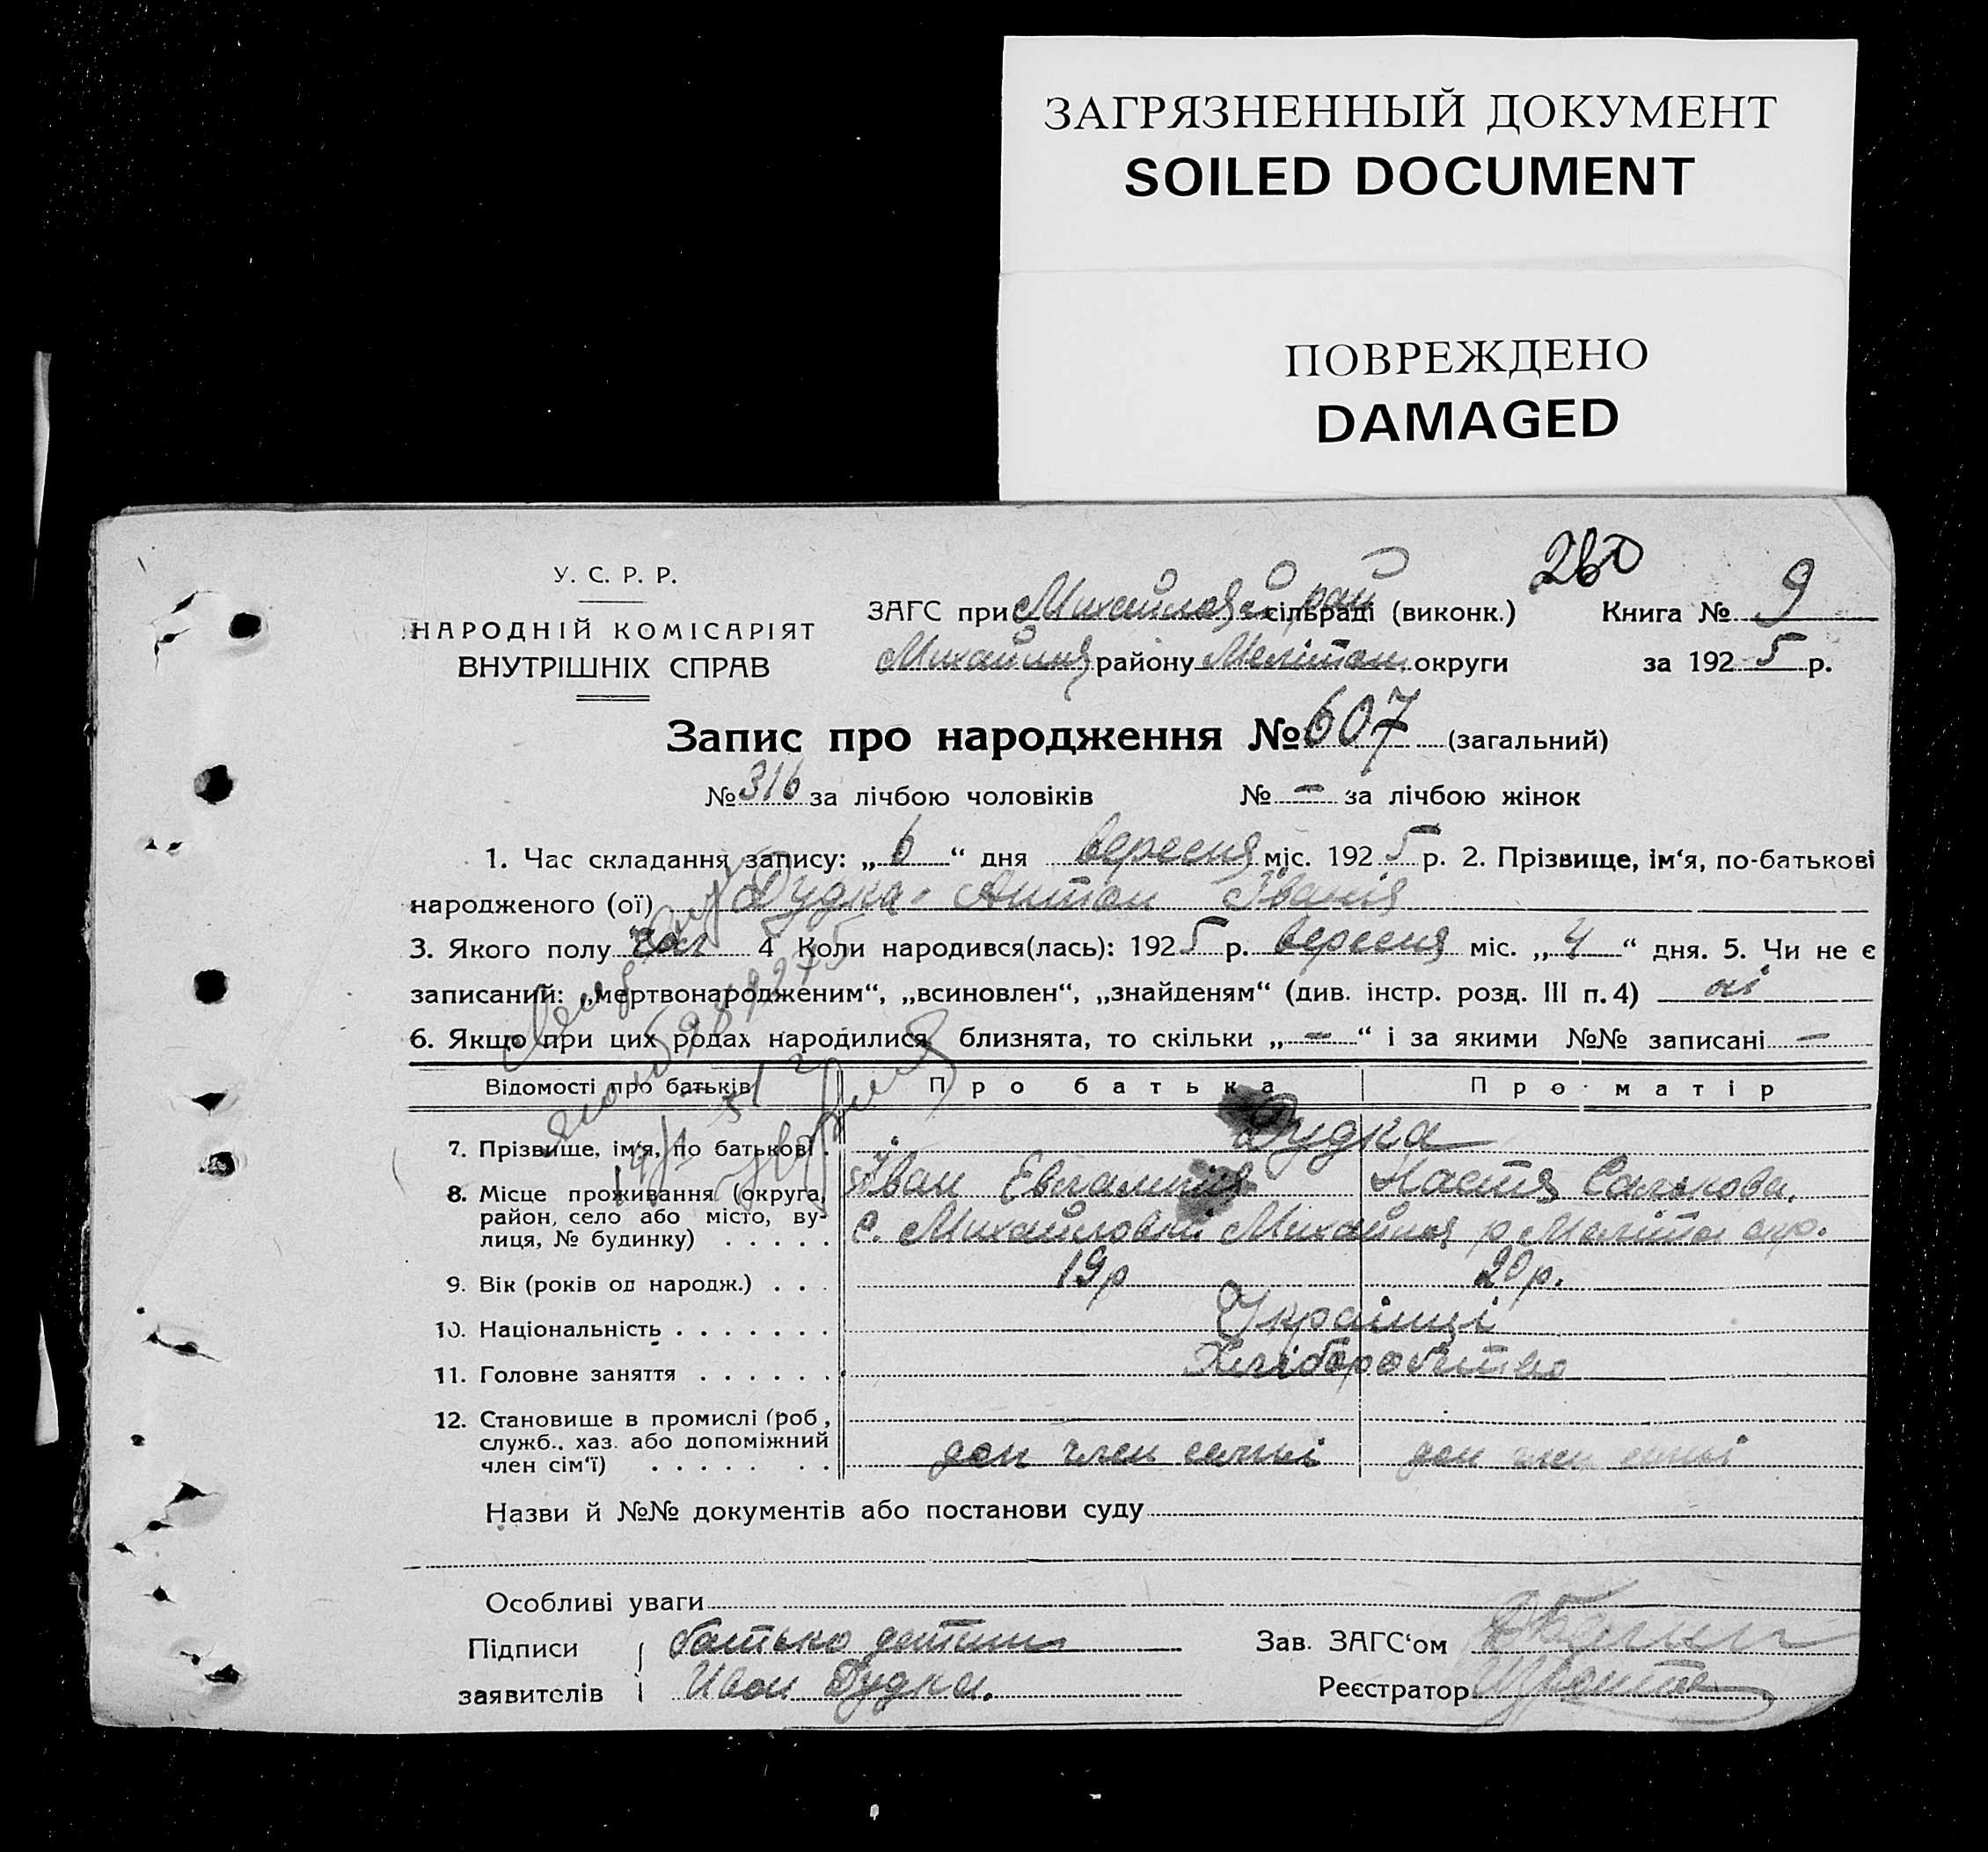 ЗАГРЯЗНЕННЫЙ ДОКУМЕНТ
SOILED DOCUMENT
ПОВРЕЖДЕНО
DAMAGED
У. С. Р. Р.
НАРОДНІЙ КОМІСАРІЯТ
ВНУТРІШНІХ СПРАВ
260
ЗАГС при рай сільраді (виконк.) Книга № 9
району Мелітоп. округи за 1925 р.
Запис про народження № 607 (загальний)
№ 316 за лічбою чоловіків № – за лічбою жінок
1. Час складання запису: „6“ дня вересня міс. 1925 р. 2. Прізвище, ім‘я, по-батькові
народженого (ої) Дудка Антон Іванів
3. Якого полу чол 4 Коли народився(лась): 1925 р. вересня міс. „4“ дня. 5. Чи не є
записаний: „мертвонародженим“, „всиновлен“, „знайденям“ (див. інстр. розд. III п. 4) ні
6. Якщо при цих родах народилися близнята, то скільки „–“ і за якими №№ записані –
Відомості про батьків Про батька Про матір
7. Прізвище, ім‘я, по батькові . Дудка
8. Місце проживання (округа, Іван Настя
район, село або місто, ву-
лиця, № будинку) . . . . . с. Михайловка р Меліто окр.
9. Вік (років од народж.) . . . 19 р 20 р.
10. Національність . . . . . . . Українці
11. Головне заняття . . . . . . . Хліборобство
12. Становище в промислі (роб.,
служб., хаз. або допоміжний
член сім‘ї) . . . . . . . доп член семьі доп член семьі
Назви й №№ документів або постанови суду
Особливі уваги
Підписи батько дитини Зав. ЗАГС‘ом
заявителів Иван Дудка. Реєстратор